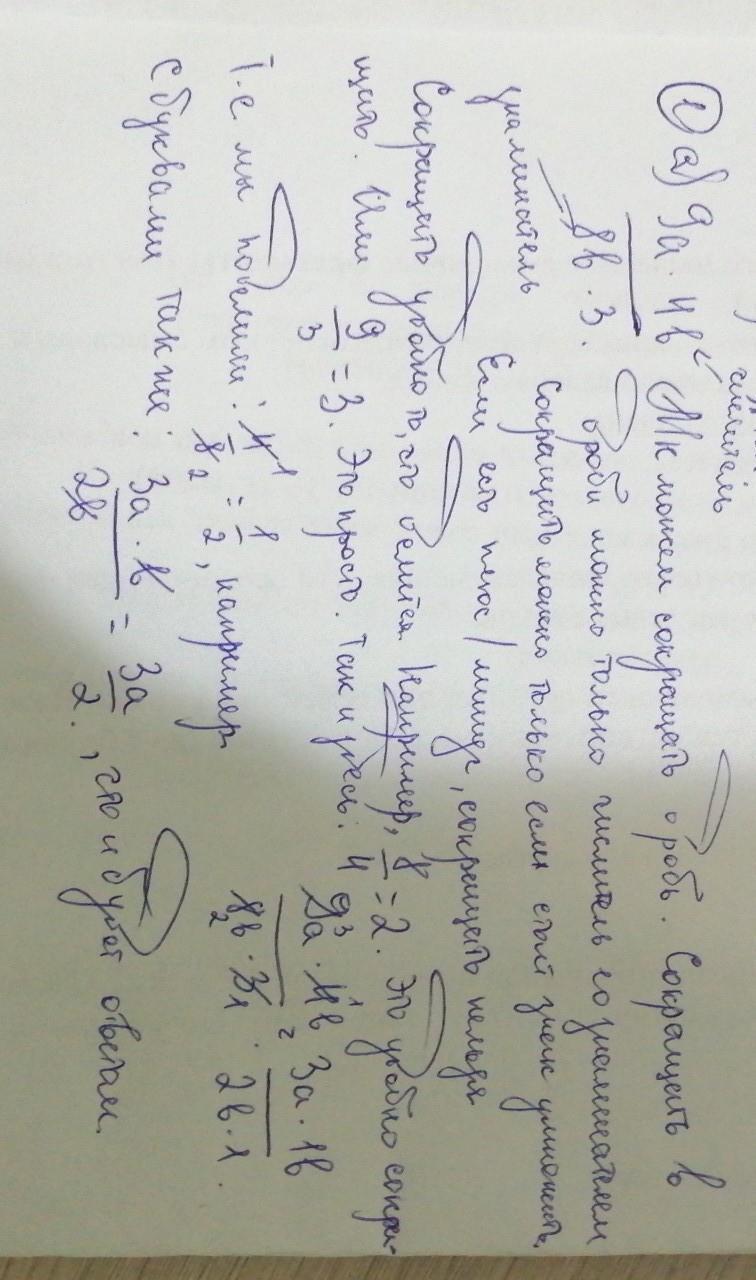 ① а) 9а 4в ← числитель
8в · 3. Мы можем сокращать дробь. Сокращать в
знаминатель дроби можно только числитель со знаминателем
Сокращать можно только если стоит знак умножить.
Если есть плюс/минус, сокращать нельзя
Сокращать удобно то, что делится. Например, 8/4 = 2. Это удобно сокра-
щать. Или 9/3 = 3. Это просто. Так и здесь: 9³а · 4¹в / 8₂в · 3₁ = 3а · 1в / 2в · 1.
Т.е мы поделили: 4¹/8₂ = 1/2, например
с буквами так же. 3а · в / 2в = 3а / 2. , что и будет ответом.